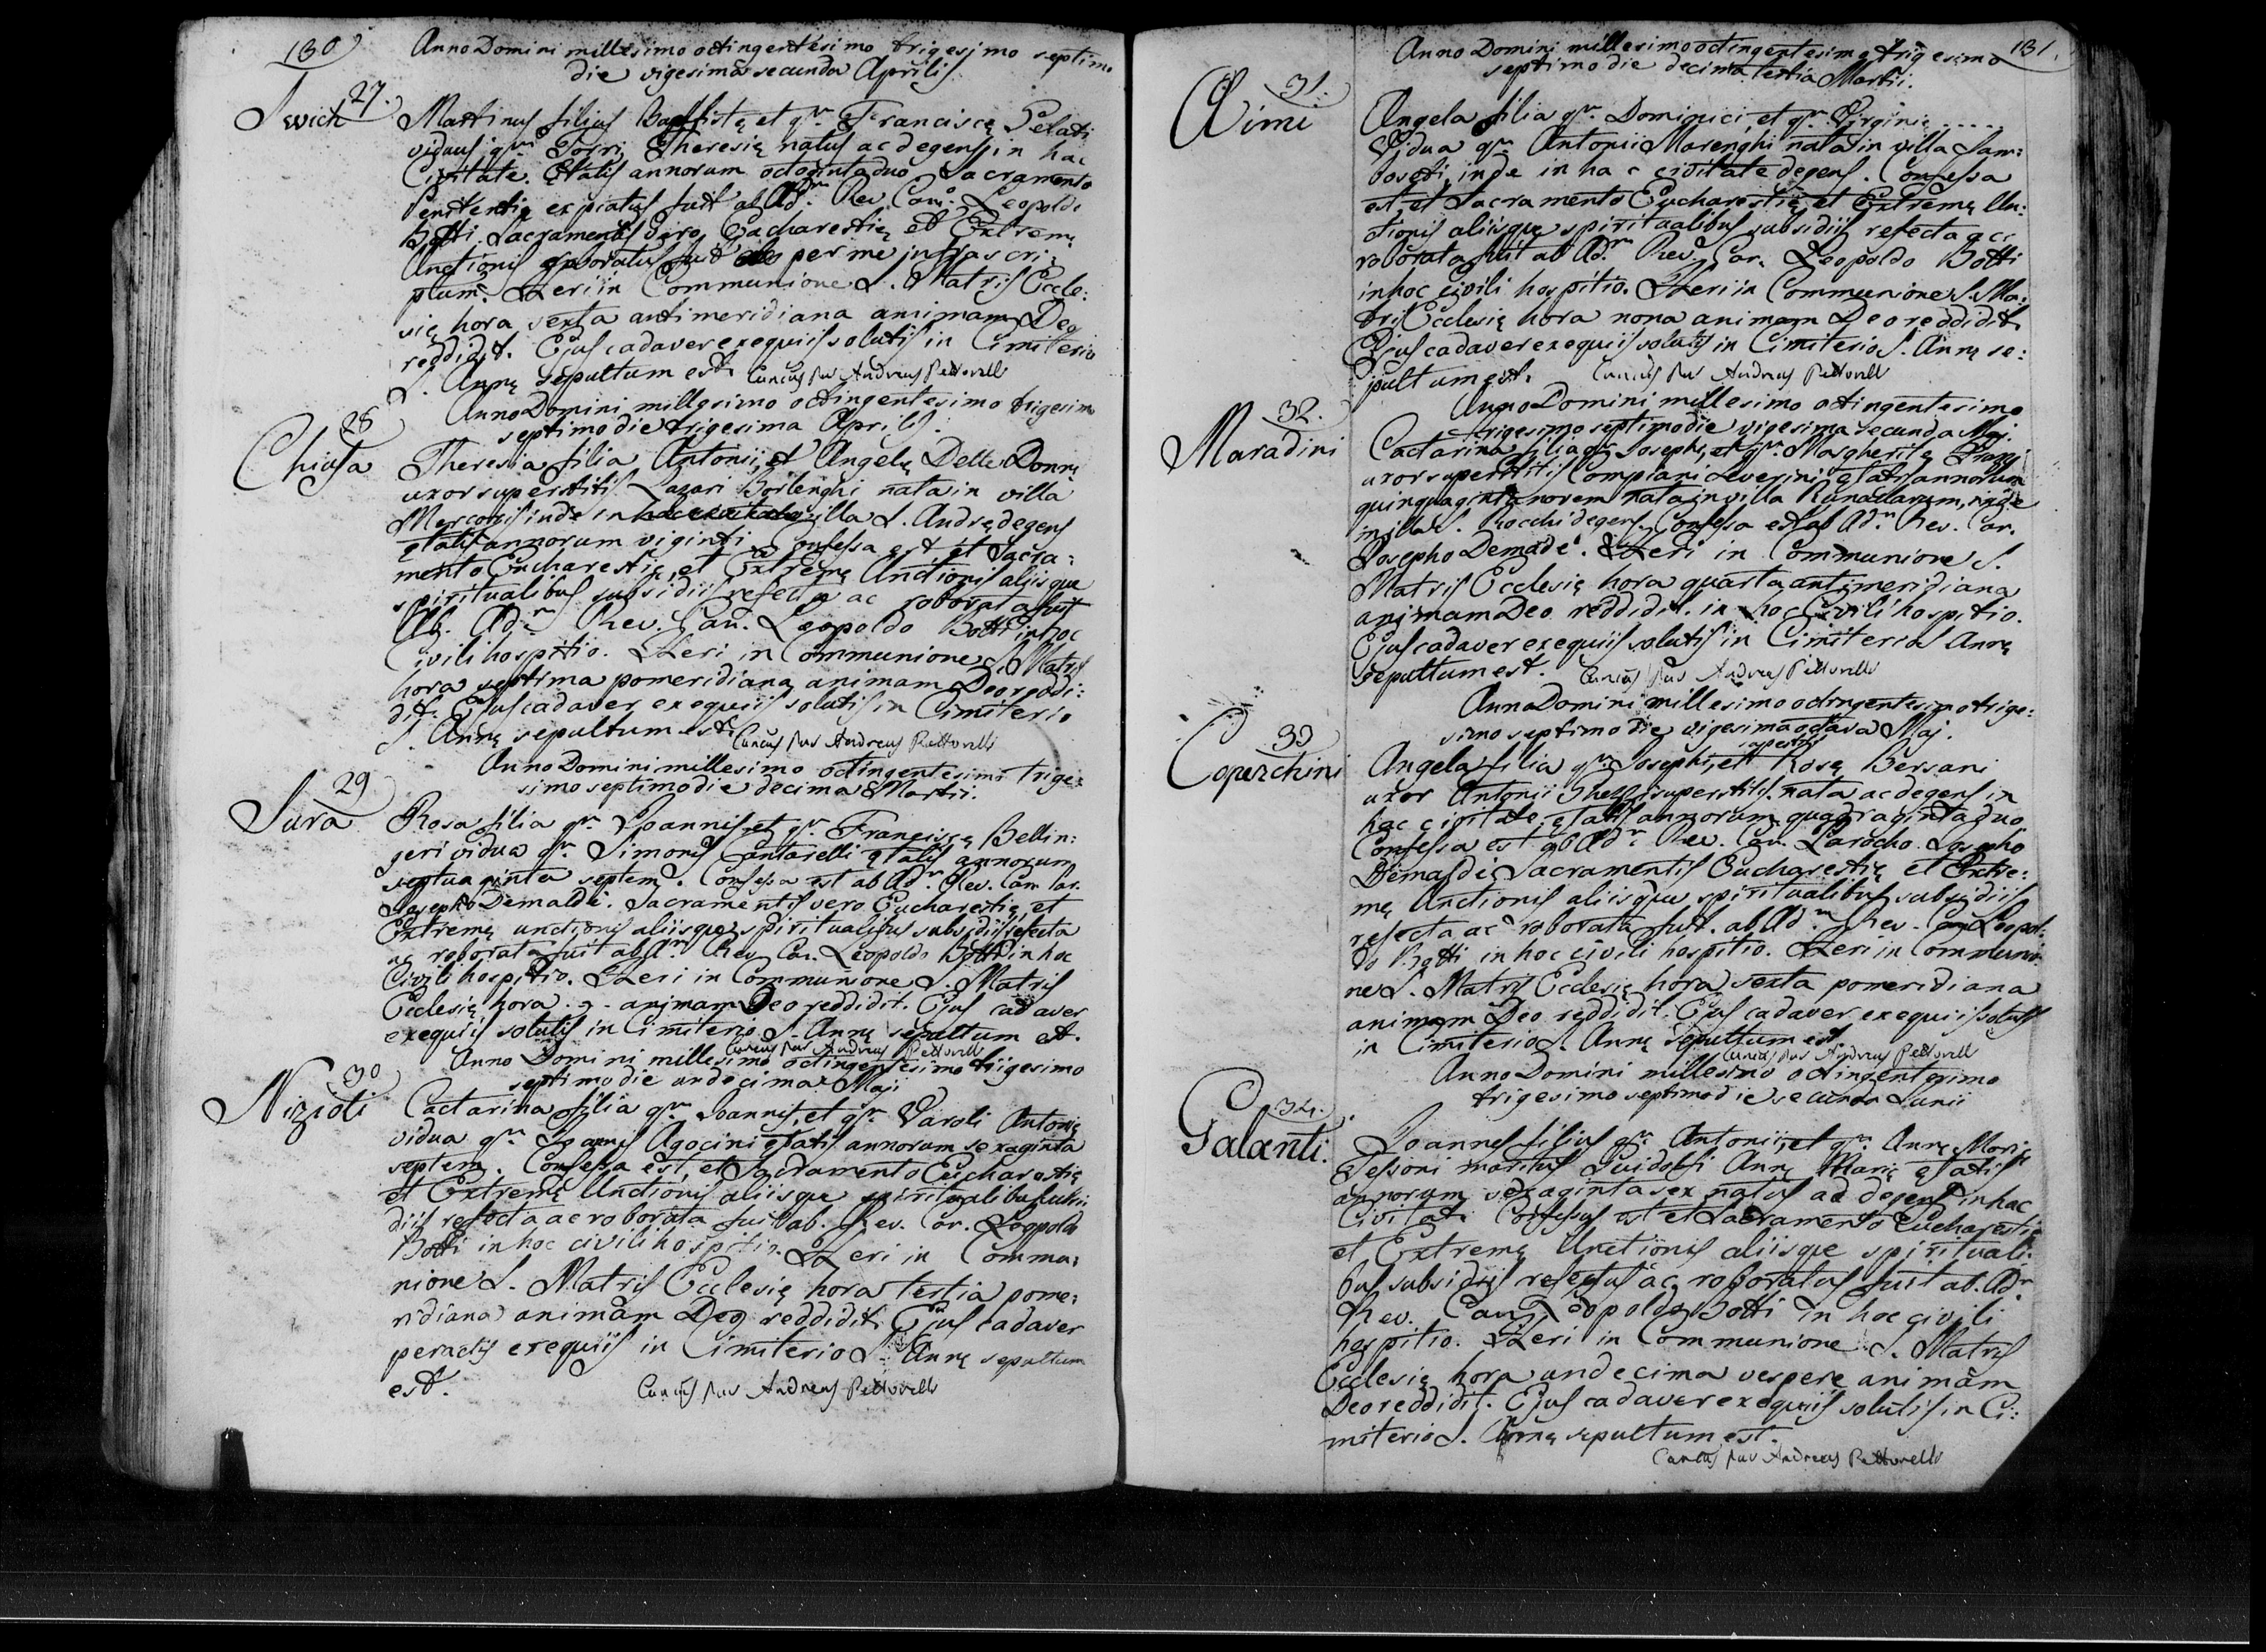 130
Anno Domini millesimo octingentesimo trigesimo septimo
die vigesima secunda Aprilis.
27.
Martinus filius Baptistę et qm. Franciscę Pelati
viduus qm. Torri Theresię natus ac degens in hac
Civitate. Ętatis annorum octoginta duo Sacramento
Penitentię expiatus fuit ab Adm. Rev. Can.o Leopoldo
Botti Sacramentis vero Eucharestię et Extremę
Unctionis roboratus fuit per me infrascri:
ptum. Heri in Communione S. Matris Eccle:
się hora sexta antimeridiana animam Deo
reddidit. Ejus cadaver exequiis solutis in Cimiterio
S. Annę sepultum est. Andreas Pettorelli
28
Chiusa
Anno Domini millesimo octingentesimo trigesimo
septimo die trigesima Aprilis.
Theresia filia Antonii, et Angelę Delle Donne
uxor superstitis Lazari Borlenghi nata in villa
inde in villa S. Andrę degens
ętatis annorum viginti Confessa est, et Sacra:
mento Eucharestię, et Extremę Unctionis aliisque
spiritualibus subsidiis refecta ac roborata fuit
Ab. Adm. Rev. Can. Leopoldo Botti in hoc
Civili hospitio. Heri in Communione S. Matris
hora septima pomeridiana animam Deo reddi:
dit. Ejus cadaver exequiis solutis in Cimiterio
S. Annę sepultum est. Andreas Pettorelli
29
Sura
Anno Domini millesimo octingentesimo trige:
simo septimo die decima Martii.
Rosa filia qm. Joannis, et qm. Franciscę Bellin:
geri vidua qm. Simonis Cantarelli ętatis annorum
septuaginta septem. Confessa est ab Adm. Rev. Can. Par.
Josepho Demaldè. Sacramentis vero Eucharestię, et
Extremę unctionis aliisque spiritualibus subsidiis refecta
ac roborata fuit ab Adm. Rev. Can. Leopoldo Botti in hoc
Civili hospitio. Heri in Communione S. Matris
Ecclesię hora animam Deo reddidit. Ejus cadaver
exequiis solutis in Cimiterio S. Annę sepultum est.
Andreas Pettorelli
30
Nizioli
Anno Domini millesimo octingentesimo trigesimo
septimo die undecima Maji
Cactarina filia qm. Joannis, et qm. Varoli Antonię
vidua qm. Joannis Agocini ętatis annorum sexaginta
septem. Confessa est, et Sacramento Eucharestię
et Extremę Unctionis aliisque spiritualibus subsi:
diis refecta ac roborata fuit ab. Rev. Can. Leopoldo
Botti in hoc civili hospitio. Heri in Commu:
nione S. Matris Ecclesię hora tertia pome:
ridiana animam Deo reddidit. Ejus cadaver
peractis exequiis in Cimiterio S. Annę sepultum
est. Andreas Pettorelli
131.
Anno Domini millesimo octingentesimo trigesimo
septimo die decima tertia Martii.
31.
Aimi
Angela filia qm. Dominici, et qm. Virginię .....
Vidua qm. Antonii Marenghi nata in villa Sam:
boseti, inde in hac civitate degens. Confessa
est, et Sacramento Eucharestię, et Extremę Un:
ctionis aliisque spiritualibus subsidiis refecta ac
roborata fuit ab Adm. Rev. Can. Leopoldo Botti
in hoc civili hospitio. Heri in Communione S. Ma:
tris Ecclesię hora nona animam Deo reddidit.
Ejus cadaver exequiis solutis in Cimiterio S. Annę se:
pultum est. Andreas Pettorelli
32.
Maradini
Anno Domini millesimo octingentesimo
trigesimo septimo die vigesima secunda Maj.
Cactarina filia qm. Josephi, et qm. Margheritę
uxor superstitis Compiani Severini ętatis annorum
quinquaginta novem nata in villa inde
in villa S. Rocchi degens. Confessa est ab Adm. Rev. Can.
Josepho Demadè. Heri in Communione S.
Matris Ecclesię hora quarta antimeridiana
animam Deo reddidit. in hoc Civili hospitio.
Ejus cadaver exequiis solutis in Cimiterio S. Annę
sepultum est. Andreas Pettorelli
33
Coperchini
Anno Domini millesimo octingentesimo trige:
simo septimo die vigesima octava Maj.
Angela filia qm. Josephi, et Rosę Bersani
uxor Antonii Ghezzi superstitis. nata ac degens in
hac civitate ętatis annorum quadraginta duo
Confessa est ab Adm. Rev. Can. Parocho Josepho
Demaldè, Sacramentis Eucharestię et Extre:
mę Unctionis aliisque spiritualibus subsidiis
refecta ac roborata fuit. ab Adm. Rev. Can Leopol:
do Botti in hoc civili hospitio. Heri in Communio:
ne S. Matris Ecclesię hora sexta pomeridiana
animam Deo reddidit. Ejus cadaver exequiis solutis
in Cimiterio S. Annę sepultum est.
Andreas Pettorelli
34.
Galanti.
Anno Domini millesimo octingentesimo
trigesimo septimo die secunda Junii
Joannes filius qm. Antonii, et qm. Annę Marię
Tessoni maritus Guidolfi Annę Marię ętatis
annorum sexaginta sex natus ac degens in hac
Civitate Confessus est et Sacramento Eucharestię
et Extremę Unctionis aliisque spirituali:
bus subsidiis refectus ac roboratus fuit ab. Adm.
Rev. Can. Leopoldo Botti in hoc civili
hospitio. Heri in Communione S. Matris
Ecclesię hora undecima vespere animam
Deo reddidit. Ejus cadaver exequiis solutis in Ci:
miterio S. Annę sepultum est.
Andreas Pettorelli